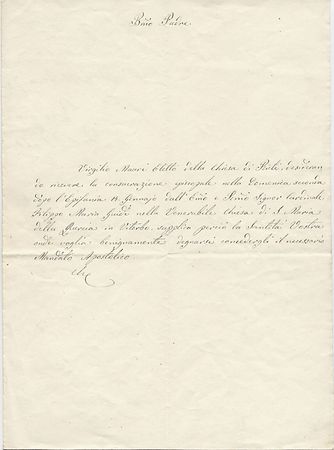 Bmo Padre
Virgilio Mucci Eletto della Chiesa di Forlì, desideran
do ricevere la consacrazione episcopale nella Domenica seconda
dopo l'Epifania 19 Gennajo dall' Emo e Rmo Signor Cardinale
Filippo Maria Guidi nella Venerabile Chiesa di S. Maria
della Quercia in Viterbo, supplica perciò la Santità Vostra
onde voglia benignamente degnarsi concedergli il necessario
Mandato Apostolico